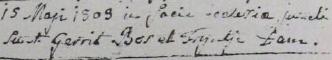 15 Maji 1809 in facie ecclesiæ juncti
sunt Gerrit Bos et Trijntie Dam.